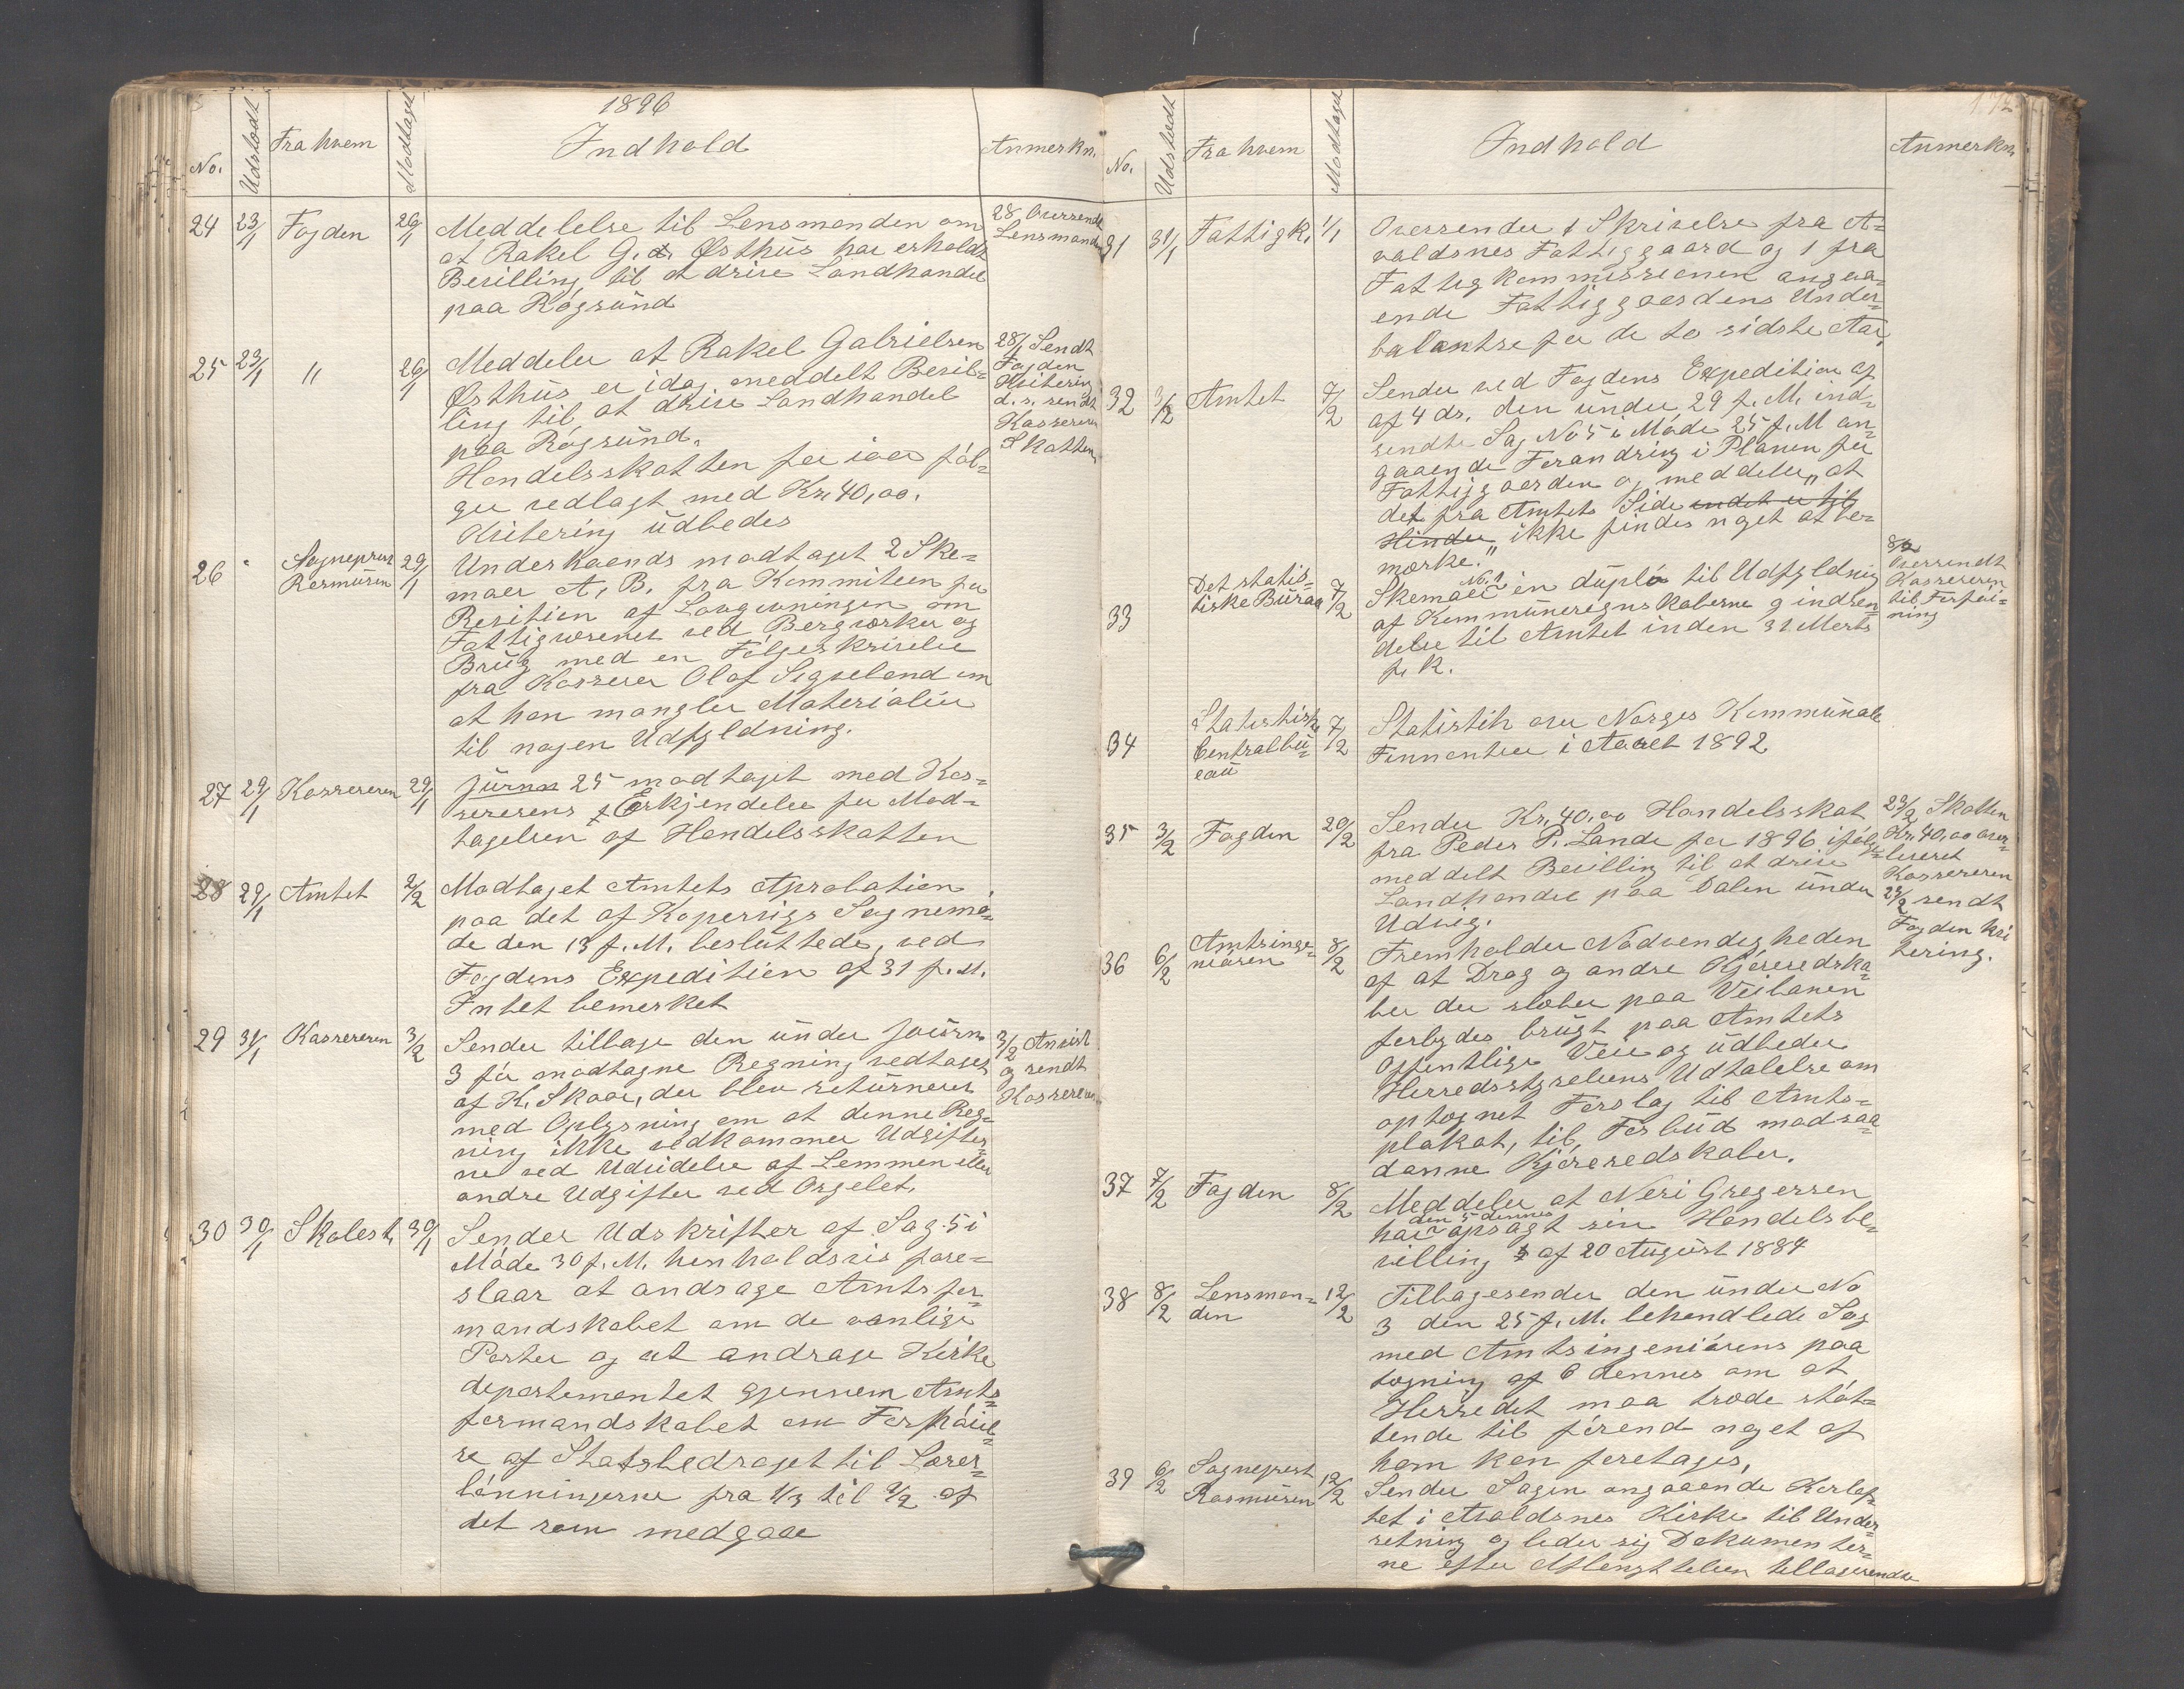 1896
No.
Udstedt
Fra hvem
Modtaget
Indhold
Anmerkn.
24 23/1 Fogden 26/1
Meddelelse til Lensmanden om
at Rakel G. d. Østhus har erholdt
Bevilling til at drive Landhandel
paa Røgsund
28/1 Oversendt
Lensmanden
25 23/1 " 26/1
Meddeler at Rakel Gabrielsen
Østhus er idag meddelt Bevil=
ling til at drive Landhandel
paa Røgsund.
Handelsskatten for iaar føl=
ger vedlagt med Kr. 40,00.
Kvitering udbedes
28/1 Sendt
Fogden
Kvitering
d. s. sendt
Kassereren
Skatten
26 " Sogneprest
Rasmusen 29/1
Underhaands modtaget 2 Ske=
maer A, B, fra Kommiteen for
Revition af Lovgivningen om
Fattigvæsenet ved Bergværker og
Brug med en Følgeskrivelse
fra Kasserer Olaf Sigveland om
at han mangler Materialier
til nogen Udfyldning.
27 29/1 Kassereren 29/1
Journ 25 modtaget med Kas=
sererens Erkjendelse for Mod=
tagelsen af Handelsskatten
28 29/1 Amtet 2/2
Modtaget Amtets Aprobation
paa det af Kopervigs Sognemø=
de den 13 f. M. besluttede, ved
Fogdens Expedition af 31 f. M.
Intet bemerket
29 31/1 Kassereren 3/2
Sender tilbage den under Journ
3 før modtagne Regning vedtaget
af K. Skaar, der blev returneret
med Oplysning om at denne Reg=
ning ikke vedkommer Udgifter
ne ved Udvidelse af Lemmen eller
andre Udgifter ved Orgelet.
3/2 Anvist
og sendt
Kassereren
30 30/1 Skolest. 30/1
Sender Udskrifter af Sag 5 i
Møde 30 f. M. henholdsvis fore=
slaar at andrage Amtsfor=
mandskabet om de vanlige
Poster og at andrage Kirke
departementet gjennem Amts=
formandskabet om Forhøiel=
se af Statsbedraget til Lærer=
lønningerne fra 1/3 til 1/2 af
det som medgaar
No.
Udstedt
Fra hvem
Modtaget
Indhold
Anmerkn.
31 31/1 Fattigk. 1/1
Oversender 1 Skrivelse fra A=
valdsnes Fattiggaard og 1 fra
Fattigkommissionen angaa=
ende Fattiggaardens Under=
balantse for de to sidste Aar,
32 3/2 Amtet 7/2
Sender ved Fogdens Expedition af
af 4 ds. den under 29 f. M. ind=
sendte Sag No 5 i Møde 25 f. M an=
gaaende Forandring i Planen for
Fattiggaarden og meddeler, "at
det fra Amtets Side
ikke findes noget at be=
mærke."
33 Det statis=
tiske Bürau 7/2
Skemaer No. 1 in duplo til Udfyldnig
af Kommuneregnskaberne og indsen=
delse til Amtet inden 31 Marts
f. k.
8/2
Oversendt
Kassereren
til Forføi=
ning
34 Statistisk
Centralbu=
eau 7/2
Statistik over Norges Kommunale
Finnentser i Aaret 1892
35 3/2 Fogden 20/2
Sender Kr. 40,00 Handelsskat
fra Peder P. Lande for 1896 ifølge
meddelt Bevilling til at drive
Landhandel paa Dalen under
Udvig.
23/2 Skatten
Kr. 40,00 over=
leveret
Kassereren
23/2 sendt
Fogden kvi
tering.
36 6/2 Amtsinge=
niøren 8/2
Fremholder Nødvendigheden
af at Drag og andre Kjøreredska=
ber der slæber paa Veibanen
forbydes brugt paa Amtets
offentlige Veie og udbeder
Herredsstyrelsens Udtalelse om
optegnet Forslag til Amts=
plakat, til, Forbud mod saa=
danne Kjøreredskaber.
37 7/2 Fogden 8/2
Meddeler at Neri Gregersen
har den 5 dennes opsagt sin Handelsbe=
villing af 20 August 1884
38 8/2 Lensman=
den 12/2
Tilbagesender den under No
3 den 25 f. M. behandlede Sag
med Amtsingeniørens paa
tegning af 6 dennes om at
Herredet maa træde støt=
tende til førend noget af
ham kan foretages,
39 6/2 Sogneprest
Rasmusen 12/2
Sender Sagen angaaende Korlof=
tet i Avaldsnes Kirke til Under=
retning og beder sig Dokumenter=
ne efter Afbenyttelsen tilbagesendte